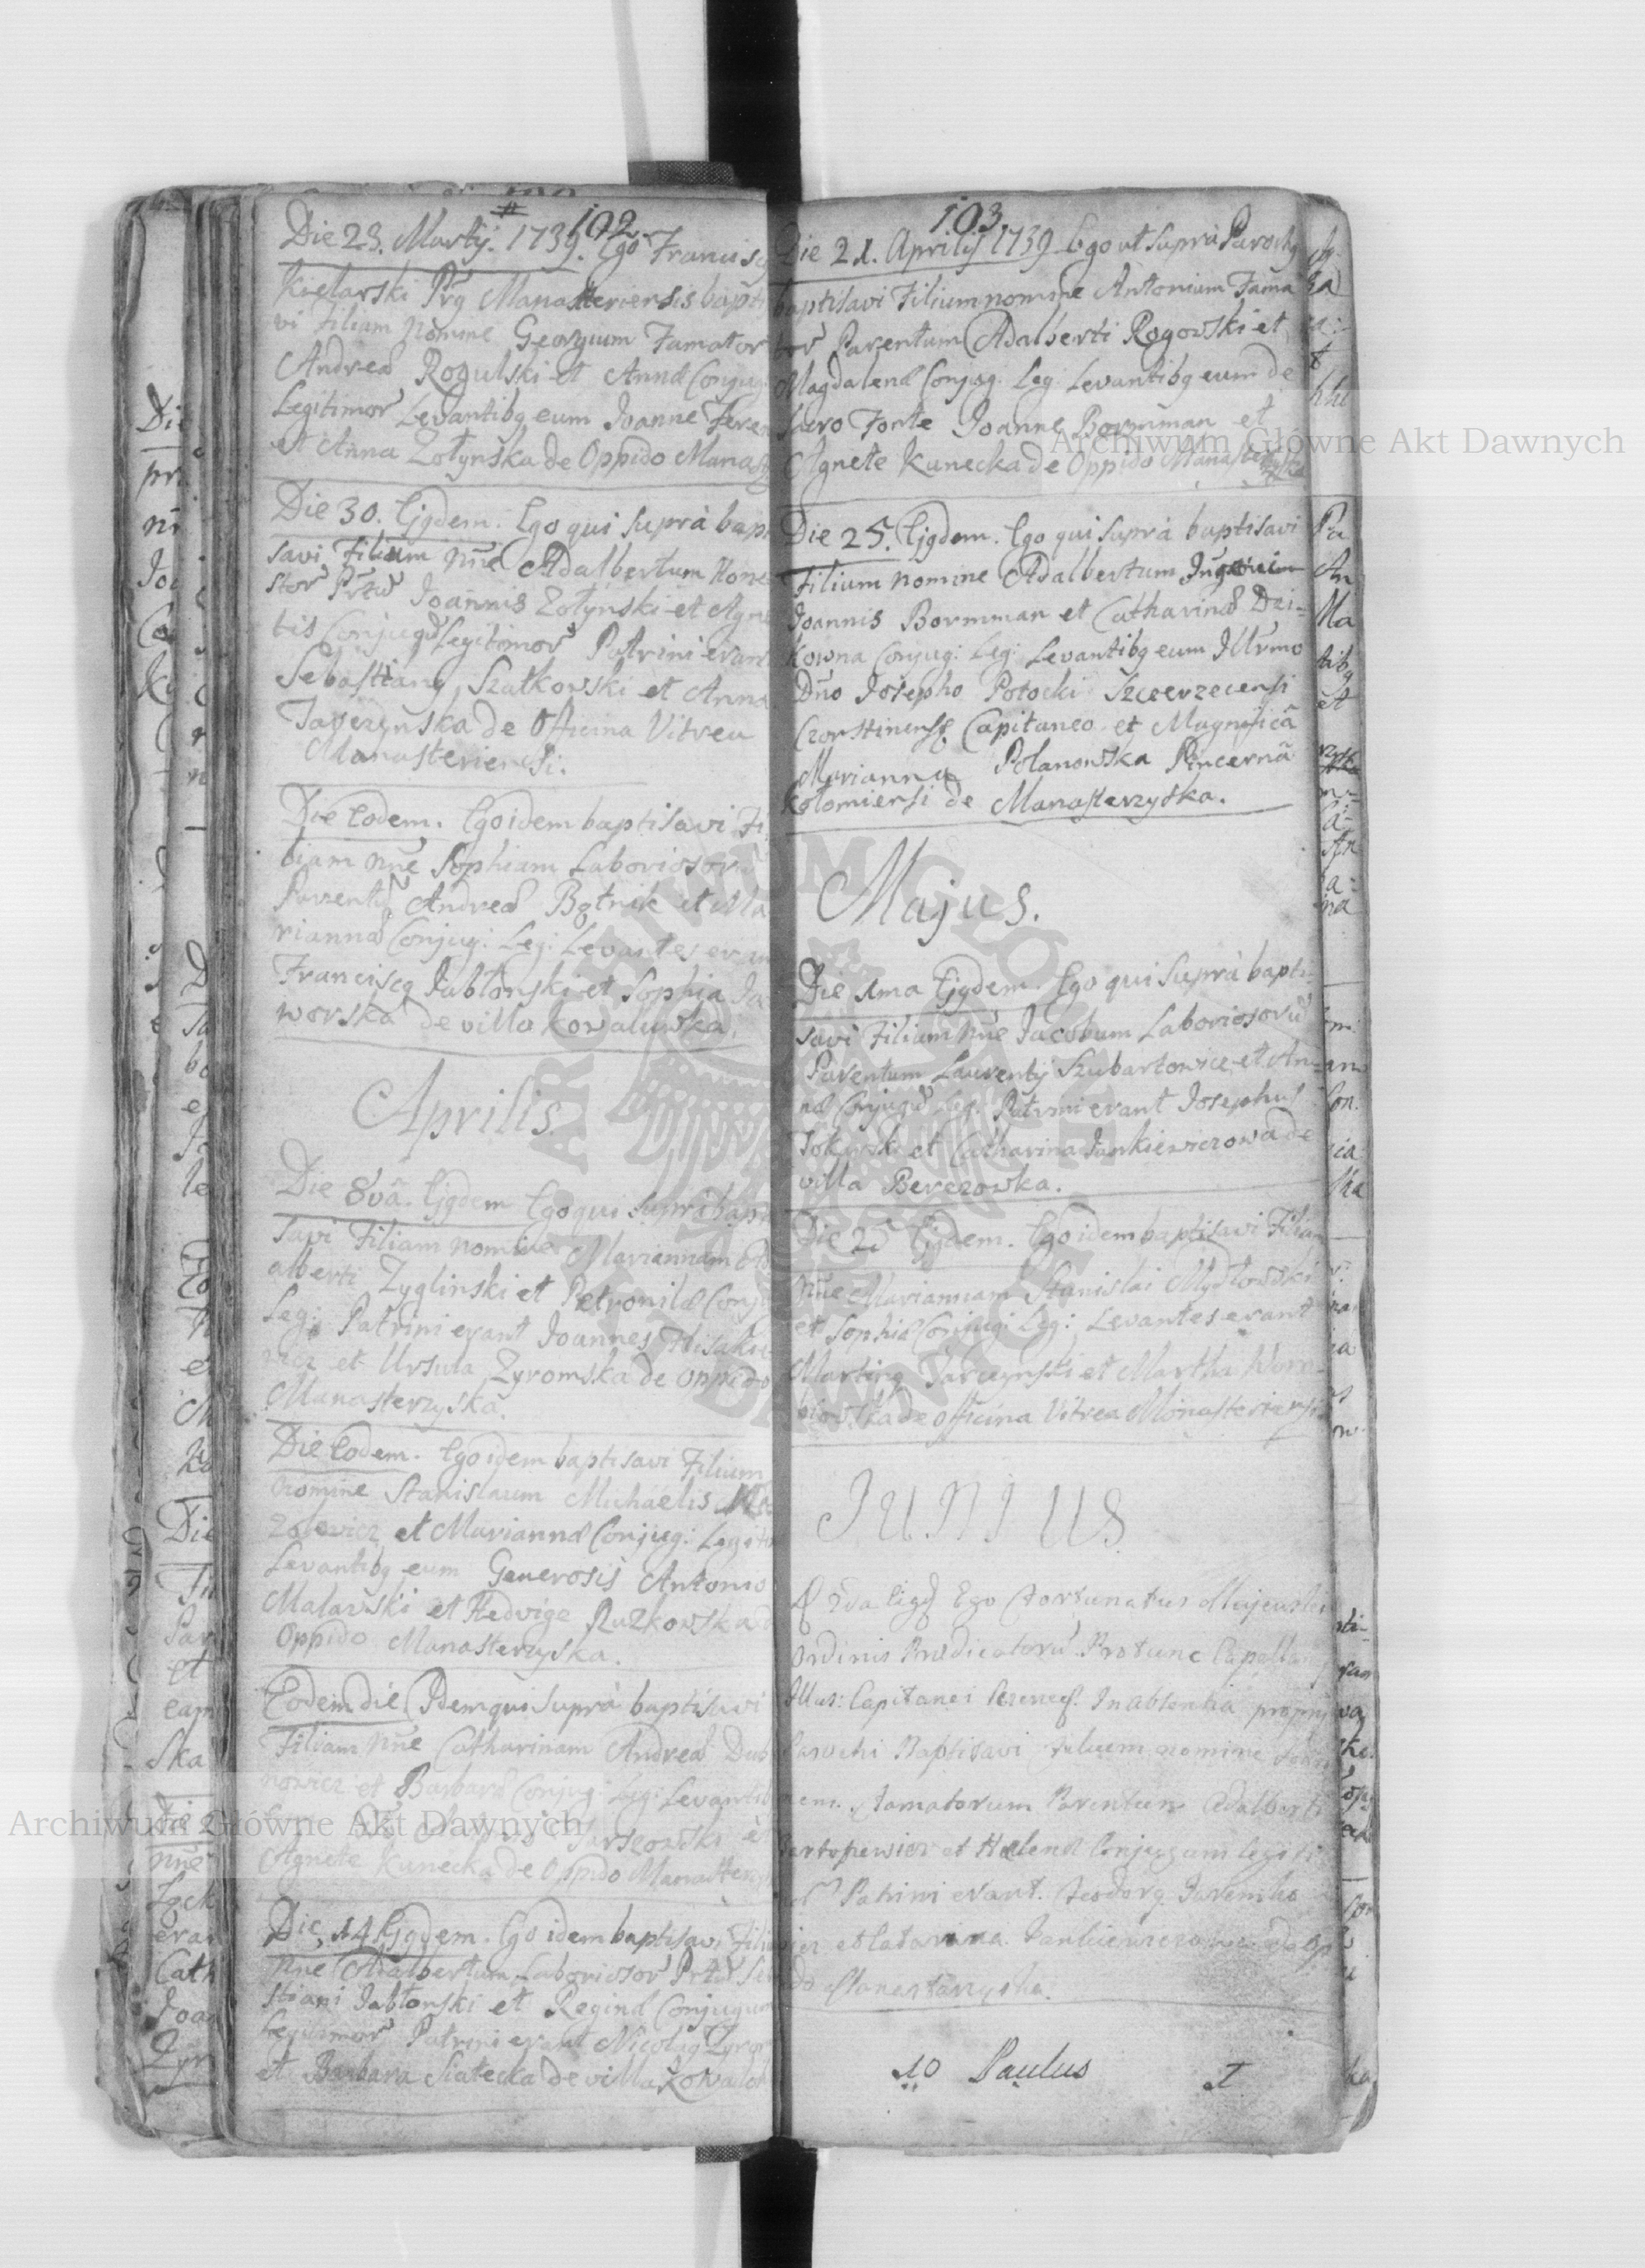 102.
Die 23. Martij. 1739. Ego Francisc
Kielarski Prg Manasteriensis bapti
vi Filium nomine Georgium Famator
Andreæ Rogulski et Annæ Conjug
Legitimor Levantibg eum Joanne Feren
et Anna Zołynska de Oppido Manast
Die 30. Ejgdem. Ego qui suprà bapt
savi Filium nne Adalbertum Hone
stor Prtu Joannis Zołynski et Agne
tis Conjugu Legitimor Patrini erant
Sebastiang Szatkowski et Anna
de Officina Vitrea
Manasteriensi.
Die Eodem. Ego idem baptisavi Fi
liam nne Sophiam Laboriosoru
Parentu Andreæ Bątnik et Ma
riannæ Conjug: Leg: Levantes eran
Franciscg Jabłonski et Sophia Ja
worska de villa Kowaluwka.
Aprilis.
Die 8va. Ejgdem Ego qui suprà bapt
savi Filiam nomine Mariannam Ad
alberti Zyglinski et Petronilæ Conju
Leg: Patrini erant Joannes
wicz et Ursula Zyromska de oppido
Manasterzyska.
Die Eodem. Ego idem baptisavi Filium
nomine Stanislaum Michaelis
zolewicz et Mariannæ Conjug: Legit
Levantibg eum Generosis Antonio
Malawski et Hedvige Ruzkowska
Oppido Manasterzyska.
Eodem die Idem qui suprà baptisavi
Filiam nne Catharinam Andreæ Dub
nowicz et Barbaræ Conjug: Leg: Levantib
et
Agnete Kunecka de Oppido Manasterz
Die 14 Ejgdem. Ego idem baptisavi Fili
nne Adalbertum Laborioson Prtu Se
stiani Jabłonski et Reginæ Conjugum
Legitimor Patrini erant Nicolag Zyro
et Barbara Siatecka de villa Kowalow
103.
Die 21. Aprilis 1739 Ego ut suprà Parochg
baptisavi Filium nomine Antonium Fama
tor Parentum Adalberti Rogowski et
Magdalenæ Conjug. Leg: Levantibg eum de
Sacro Fonte Joanne Bormman et
Agnete Kunecka de Oppido Manaster
zyska
Die 25. Ejgdem. Ego qui suprà baptisavi
Filium nomine Adalbertum
Joannis Bormman et Catharinæ Dzi=
kowna Conjug: Leg: Levantibg eum Illrmo
Dno Josepho Potocki Szczerzecensi
Czorstinensg Capitaneo et Magnificâ
Marianna Polanowska Pincernâ
Kołomiensi de Manasterzyska.
Majus.
Die 1ma Ejgdem. Ego qui suprà bapti
savi Filium nne Jacobum Laboriosoru
Parentum Laurentij Szubartowicz et An=
næ Conjugu Leg: Patrini erant Josephus
Tokarski et Catharina Jankiewiczowa de
villa Berezowka.
Die 25 Ejgdem. Ego idem baptisavi Filiam
nne Mariannam Stanislai Mydłowski
et Sophiæ Conjug: Leg: Levantes erant
Marting Jarczynski et Martha
de Officina Vitrea Monasteriensi
JUNIUS
D 2da Ejgd Ego Fortunatus Mujewski
Ordinis Prædicatoru Protunc Capellang
Illus: Capitanei In absentia proprij
Parochi Baptisavi Filium nomine Joan
nem. Famatorum Parentum Adalberti
et Helenæ Conjugum legiti
Patrini erant. Teodorg Jaremko
wicz et Catarina Jankiewiczowa de Op
do Manasterzyska.
10 Paulus I
Archiwum Główne Akt Dawnych
Archiwum Główne Akt Dawnych
ARCHIWUM GŁÓWNE AKT DAWNYCH